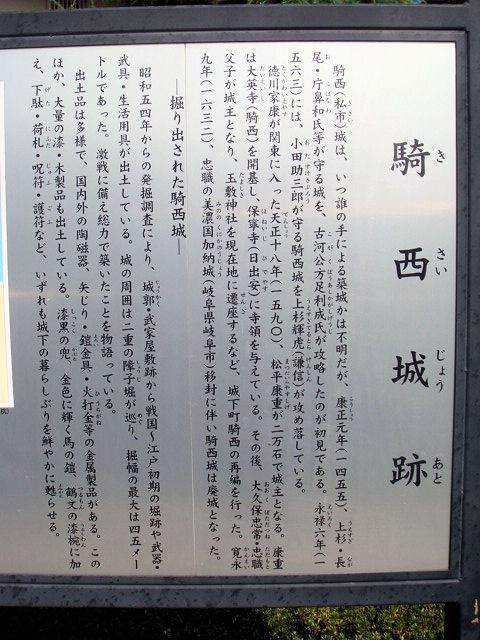 騎西城跡
きさいじょうあと
騎西(私市)城は、いつ誰の手による築城かは不明だが、康正元年(一四五五)、上杉・長
尾・庁鼻和氏等が守る城を、古河公方足利成氏が攻略したのが初見である。永禄六年(一
五六三)には、小田助三郎が守る騎西城を上杉輝虎(謙信)が攻め落している。
徳川家康が関東に入った天正十八年(一五九〇)、松平康重が二万石で城主となる。康重
は大英寺(騎西)を開基し、保寧寺(日出安)に寺領を与えている。その後、大久保忠常・忠職
父子が城主となり、玉敷神社を現在地に遷座するなど、城下町騎西の再編を行った。寛永
九年(一六三二)、忠職の美濃国加納城(岐阜県岐阜市)移封に伴い騎西城は廃城となった。
―掘り出された騎西城―
昭和五四年からの発掘調査により、城郭・武家屋敷跡から戦国~江戸初期の堀跡や武器・
武具・生活用具が出土している。城の周囲は二重の障子堀が巡り、堀幅の最大は四五メー
トルであった。激戦に備え総力で築いたことを物語っている。
出土品は多様で、国内外の陶磁器、矢じり・鎧金具・火打金等の金属製品がある。この
ほか、大量の漆・木製品も出土している。漆黒の兜、金色に輝く馬の鎧、鶴文の漆椀に加
え、下駄・荷札・呪符・護符など、いずれも城下の暮らしぶりを鮮やかに甦らせる。